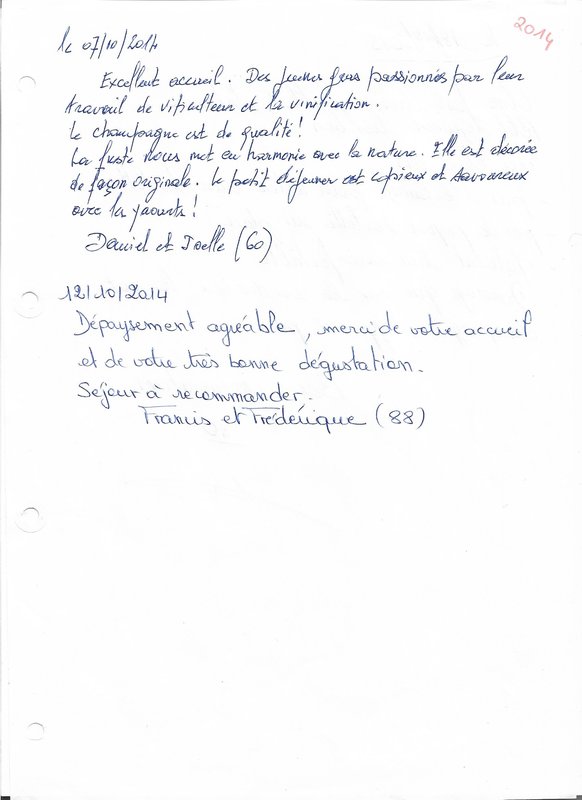 2014
le 07/10/2014
Excellent accueil. Des jeunes gens passionnés par leur
travail de viticulteur et la vinification.
Le champagne est de qualité!
La fuste nous met en harmonie avec la nature. Elle est décorée
de façon originale. Le petit déjeuner est copieux et savoureux
avec les yaourts!
Daniel et Joelle (60)
12/10/2014
Dépaysement agréable, merci de votre accueil
et de votre très bonne dégustation.
Séjour à recommander.
Francis et Frédérique (88)